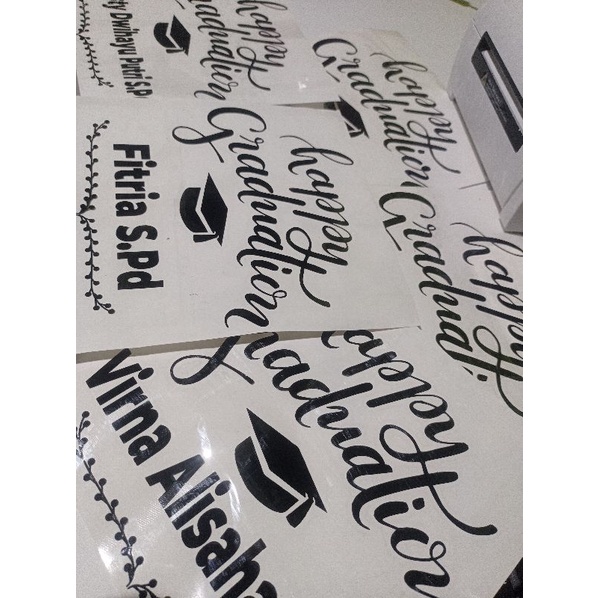 happy
Graduation
ty Dwihayu Putri S.Pd
happy
Graduation
happy
Graduation
Fitria S.Pd
happy
Graduati
happy
Graduation
Virna Alisah